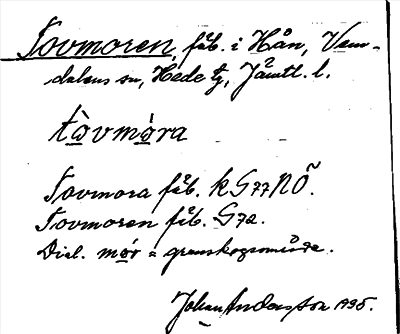 Tovmoren, fäb. i Hån, Vem-
dalens sn, Hede tg, Jämtl. l.
tòvmóra
Tovmora fäb. kG77NÖ.
Tovmoren fäb. G72.
Dial. mór = granskogsområde.
Johan Andersson 1935.